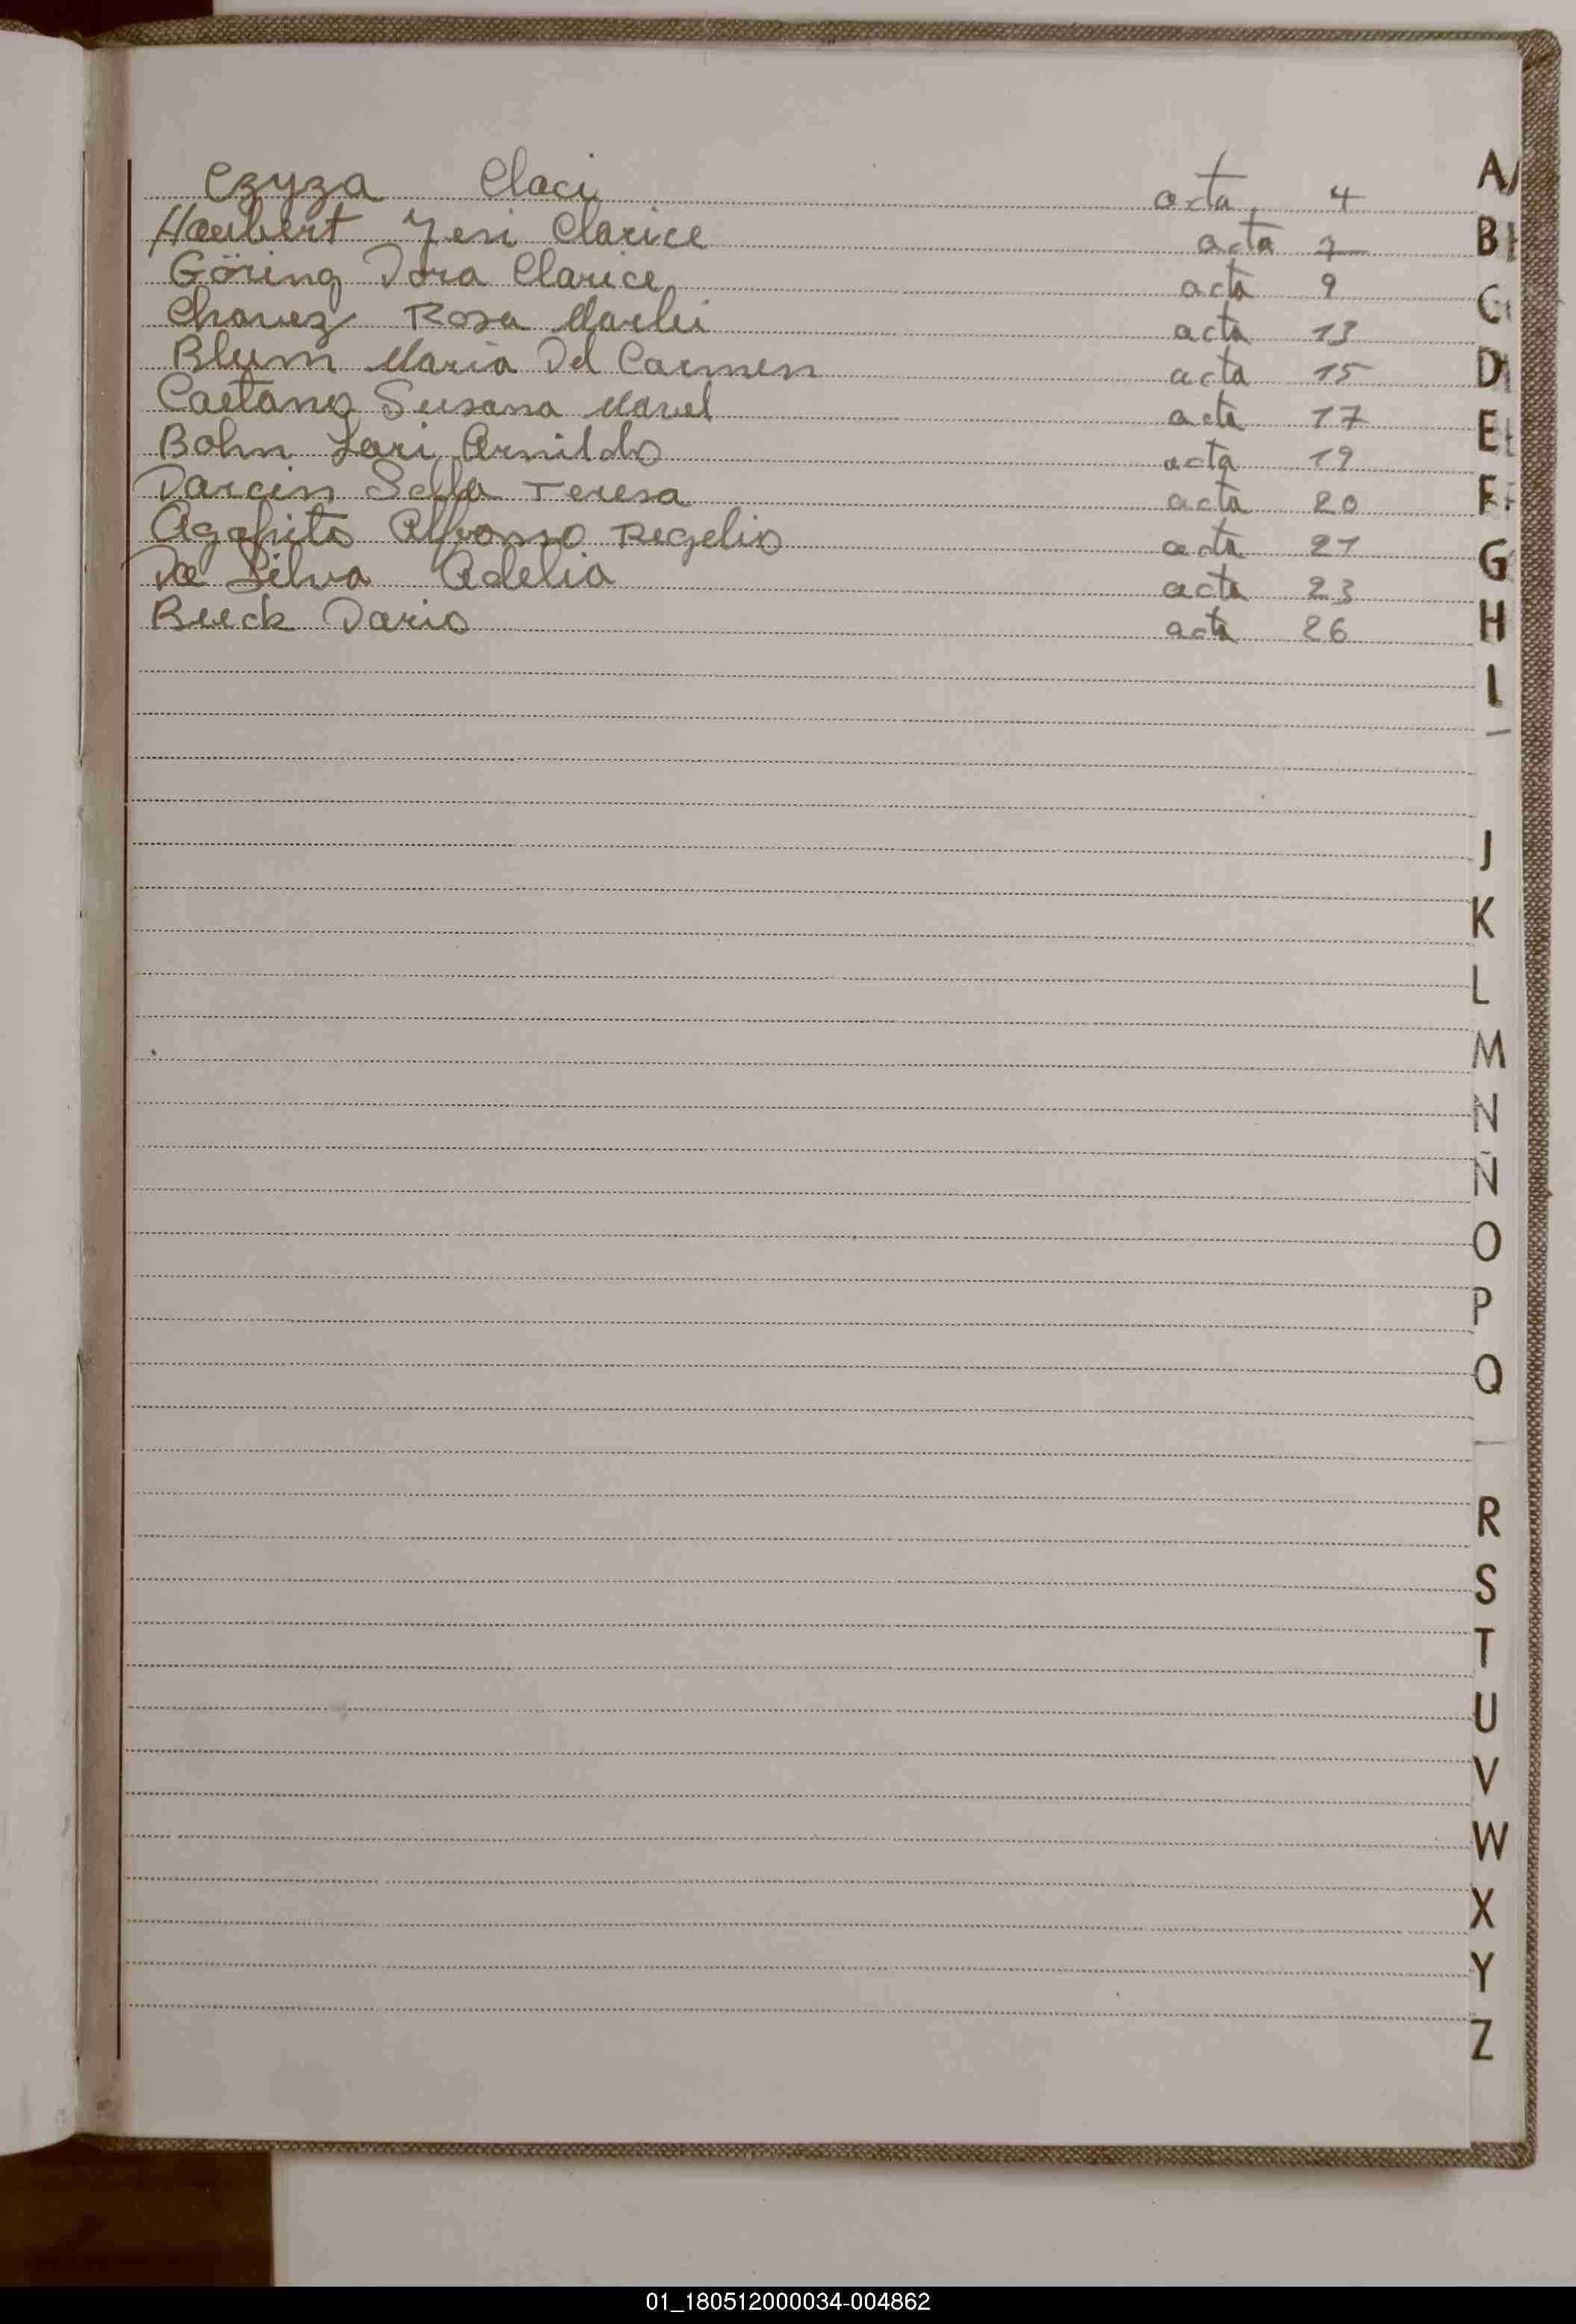 Czyza Claci acta 4
Haubert Yeni Clarice acta 7
Göring Dora Clarice acta 9
Chavez Rosa Marlei acta 13
Blum Maria Del Carmen acta 15
Caetano Susana Mavel acta 17
Bohn Lari Arnildo acta 19
Darcin Sella Teresa acta 20
Agapito Alfonso Rogelio acta 21
Da Silva Adelia acta 23
Bueck Dario acta 26
A
B
C
D
E
F
G
H
I
J
K
L
M
N
Ñ
O
P
Q
R
S
T
U
V
W
X
Y
Z
01_180512000034-004862